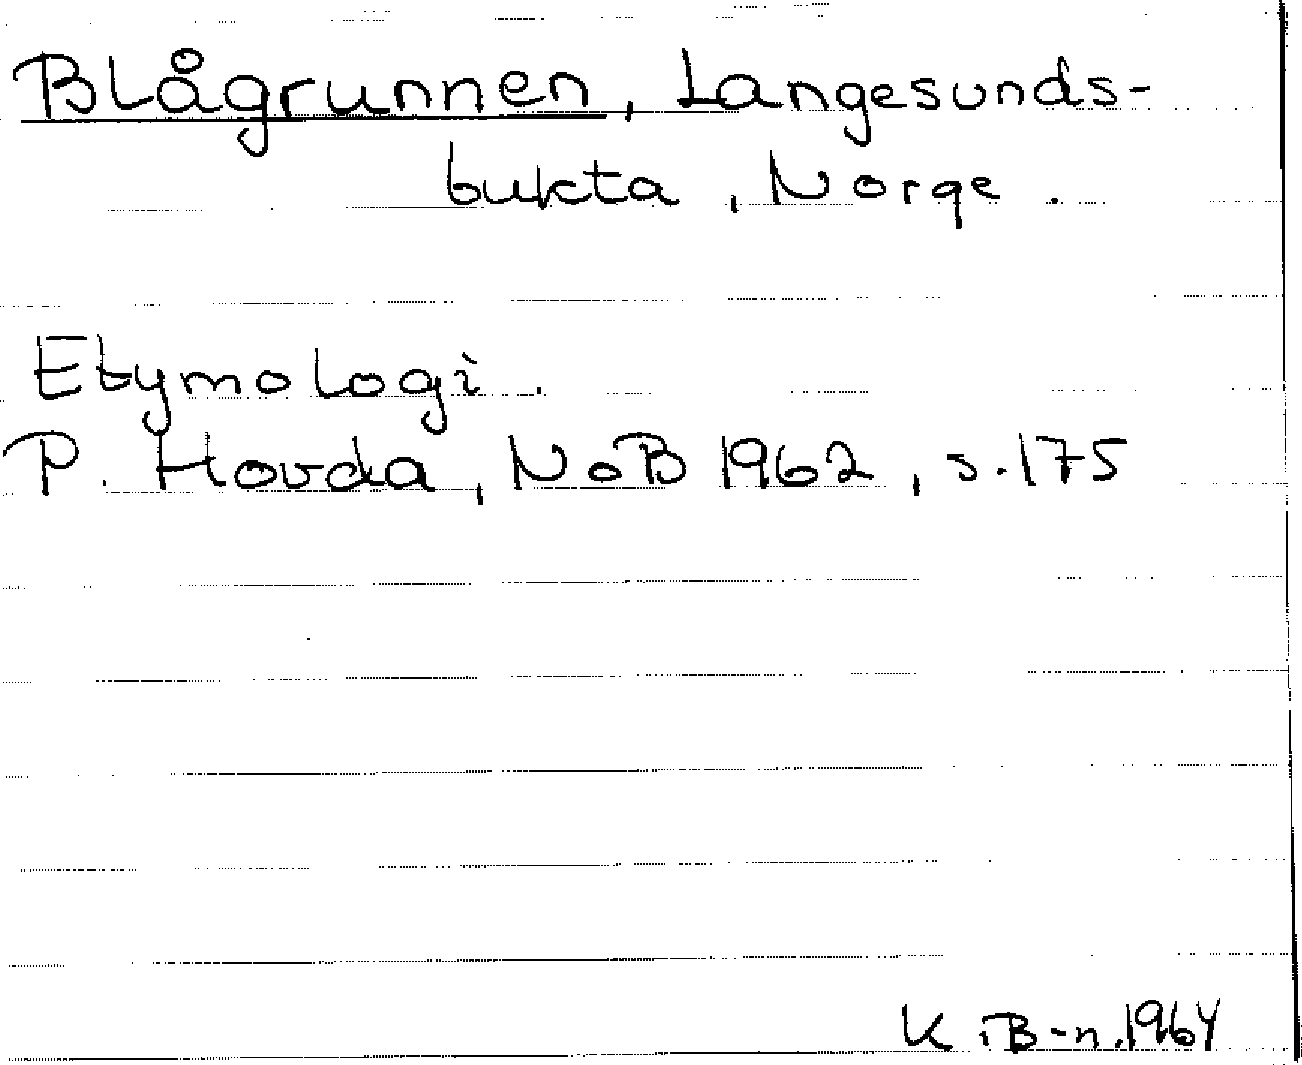 Blågrunnen, Langesunds-
bukta, Norge.
Etymologi.
P. Hovda, NoB 1962, s. 175
K iB-n. 1964